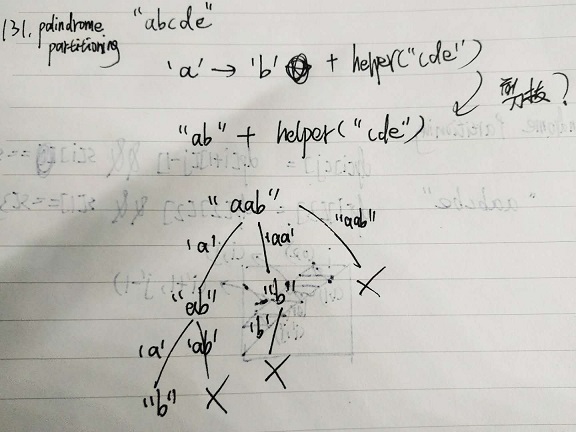 131. palindrome
partitioning
"abcde"
'a' → 'b' + helper("cde")
剪枝?
"ab" + helper("cde")
"aab"
'a' 'aa' "aab"
"ab" "b" X
'a' 'ab' 'b'
"b" X X